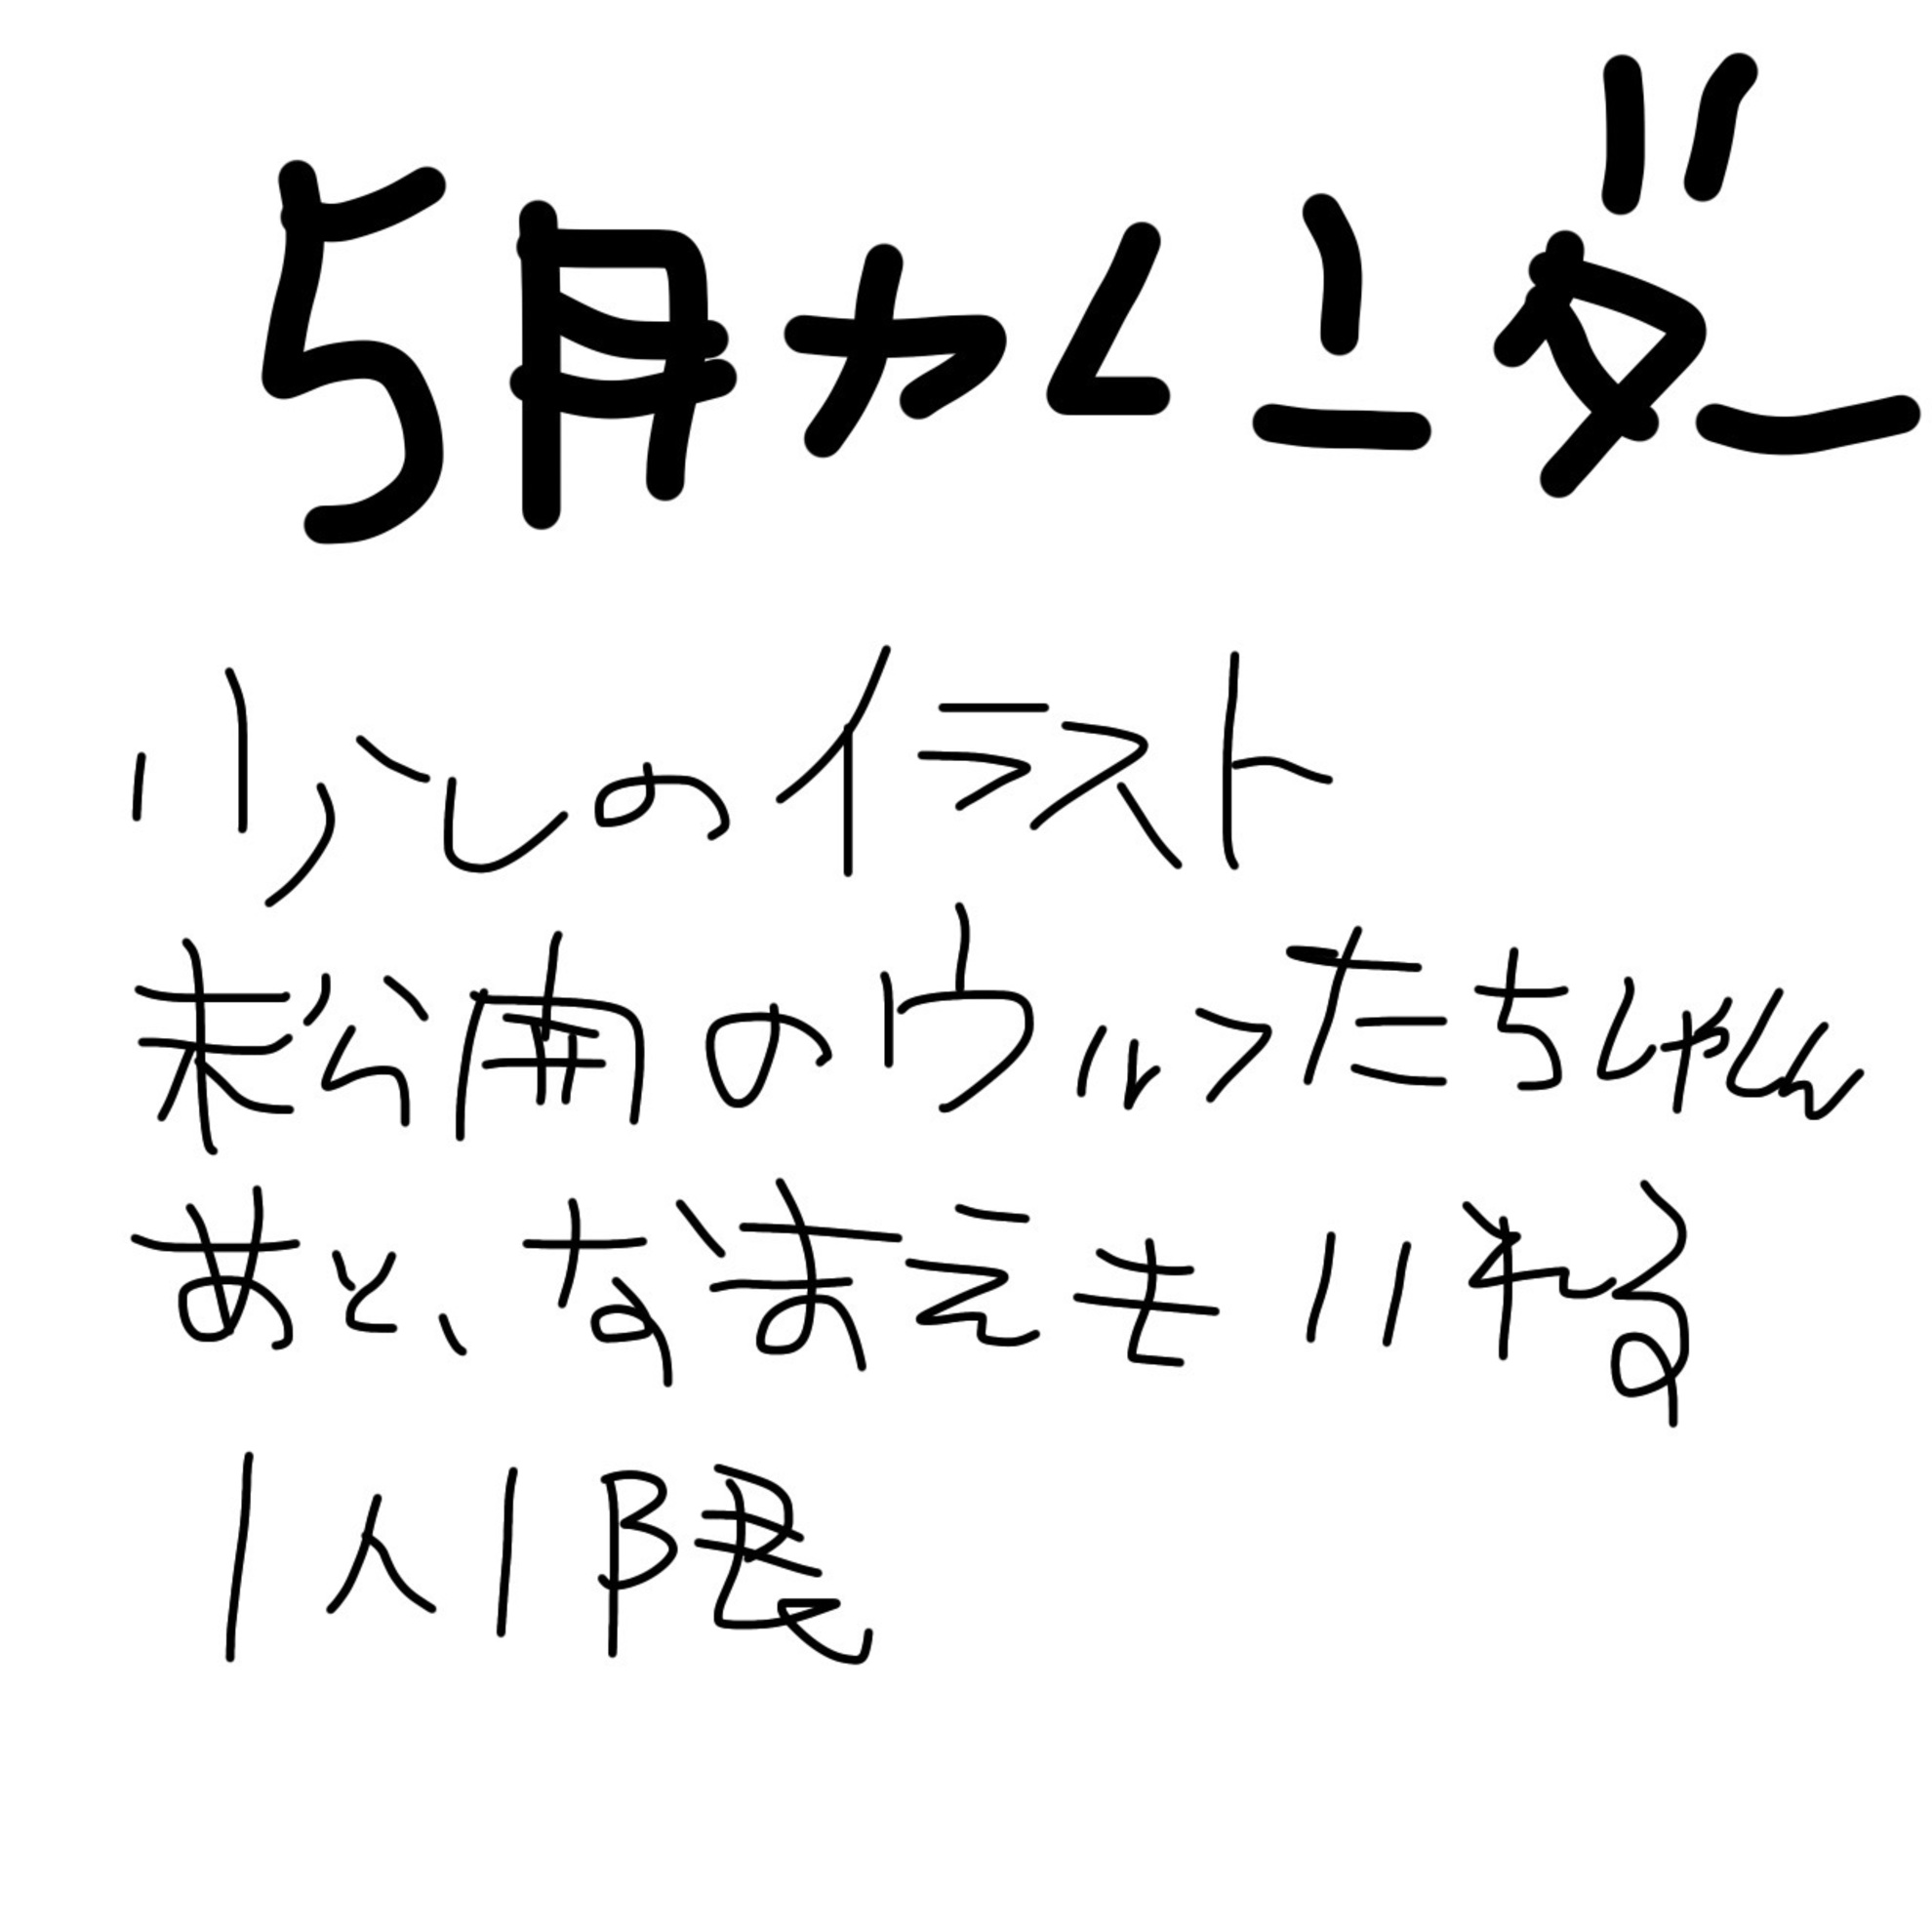 5月カレンダー
少しのイラスト
未公開のウルフたちしゃしん
あと、なまえもいれる
1人1限